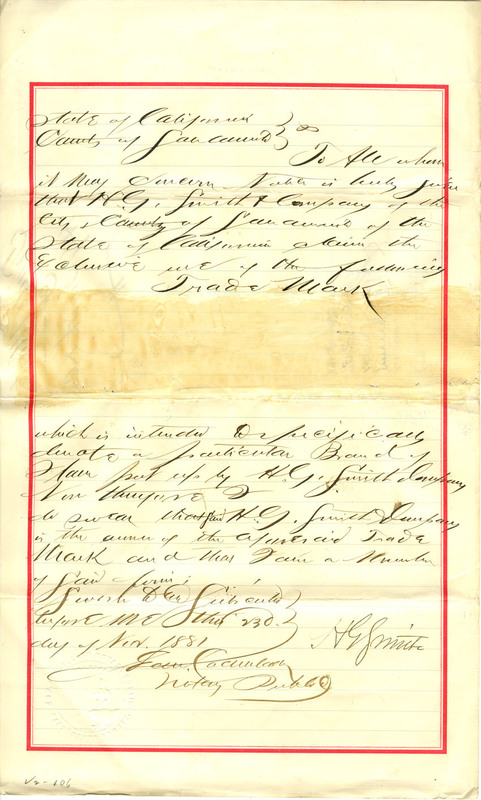 State of California
County of Sacramento } ss
To All whom
it May Concern Notice is hereby given
that H. G. Smith & Company of the
City & County of Sacramento of the
State of California claim the
Exclusive use of the following
Trade Mark
which is intended to specifically
denote a particular Brand of
put up by H. G. Smith & Company
Now therefore I
do swear that said H. G. Smith & Company
is the owner of the aforesaid Trade
Mark and that I am a Member
of said firm
Sworn to & Subscribed
before me this 23d
day of Nov. 1881
H G Smith
Notary Public
V2-106